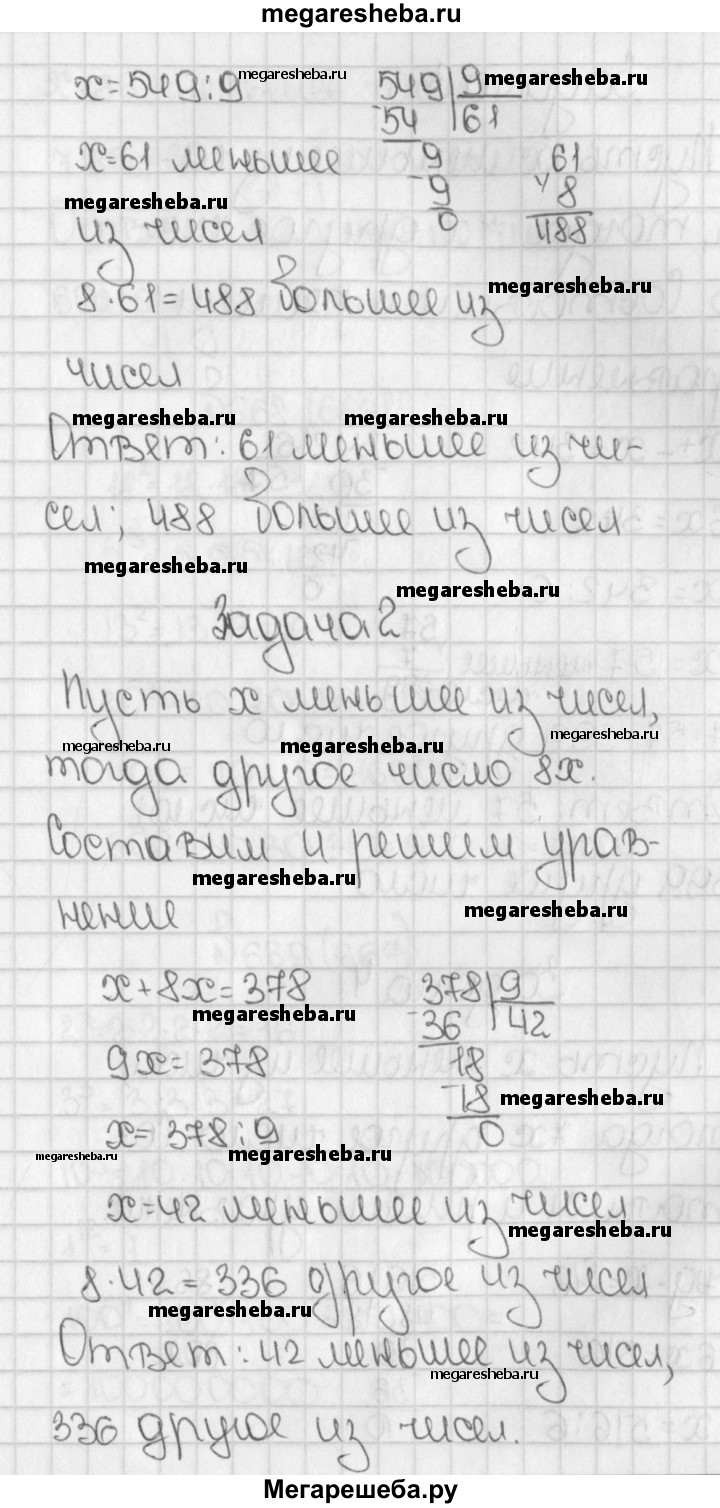 megaresheba.ru
x=549:9 megaresheba.ru 549 9 megaresheba.ru
54 61
x=61 меньшее 9 61
megaresheba.ru 9 8
из чисел 0 488
8·61=488 большее из megaresheba.ru
чисел
megaresheba.ru megaresheba.ru
Ответ: 61 меньшее из чи-
сел; 488 большее из чисел
megaresheba.ru
megaresheba.ru
Задача 2
Пусть x меньшее из чисел,
megaresheba.ru megaresheba.ru megaresheba.ru
тогда другое число 8x.
Составим и решим урав-
megaresheba.ru
нение megaresheba.ru
x+8x=378 378 9
megaresheba.ru 36 42
9x=378 18
18 megaresheba.ru
x=378:9 0
megaresheba.ru megaresheba.ru
x=42 меньшее из чисел
megaresheba.ru
8·42=336 другое из чисел
megaresheba.ru
Ответ: 42 меньшее из чисел,
megaresheba.ru
336 другое из чисел.
Мегарешеба.ру